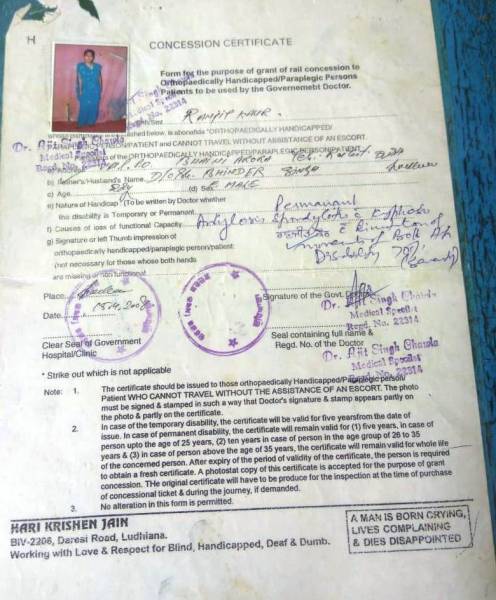 H
CONCESSION CERTIFICATE
Form for the purpose of grant of rail concession to
Orthopaedically Handicapped/Paraplegic Persons
Patients to be used by the Governemebt Doctor.
Ranjit Kaur.
below, is abonafida *ORTHOPAEDICALLY HANDICAPPED/
PARAPLEGIC PERSON/PATIENT and CANNOT TRAVEL WITHOUT AN ESCORT.
Dr. Ajit Singh Chawla
Medical Specilist
Regd. No. 22314
of the ORTHOPAEDICALLY HANDICAPPED/PARAPLEGIC PERSON/PATIENT
b) Father's/Husband's Name D/o Sh. Bhinder Singh
c) Age (d) Sex FEMALE
e) Nature of Handicap (To be written by Doctor whether
this disability is Temporary or Permanent. Permanant
f) Causes of loss of functional Capacity
g) Signature or Left Thumb impression of
orthopaedically handicapped/paraplegic person/patient
(not necessary for those whose both hands
are missing or non functional
Disability 70%
Place
Signature of the Govt. Doctor
Date 2008
Dr. Ajit Singh Chawla
Medical Specilist
Regd. No. 22314
Clear Seal of Government
Hospital/Clinic
Seal containing full name &
Regd. No. of the Doctor
Dr. Ajit Singh Chawla
Medical Specilist
Regd. No. 22314
* Strike out which is not applicable
Note: 1. The certificate should be issued to those orthopaedically Handicapped/Paraplegic person/
Patient WHO CANNOT TRAVEL WITHOUT THE ASSISTANCE OF AN ESCORT. The photo
must be signed & stamped in such a way that Doctor's signature & stamp appears partly on
the photo & partly on the certificate.
2. In case of the temporary disability, the certificate will be valid for five yearsfrom the date of
issue. In case of permanent disability, the certificate will remain valid for (1) five years, in case of
person upto the age of 25 years, (2) ten years in case of person in the age group of 26 to 35
years & (3) in case of person above the age of 35 years, the certificate will remain valid for whole life
of the concerned person. After expiry of the period of validity of the certificate, the person is required
to obtain a fresh certificate. A photostat copy of this certificate is accepted for the purpose of grant
concession. THe original certificate will have to be produce for the inspection at the time of purchase
of concessional ticket & during the journey, if demanded.
3. No alteration in this form is permitted.
HARI KRISHEN JAIN
BIV-2206, Daresi Road, Ludhiana.
Working with Love & Respect for Blind, Handicapped, Deaf & Dumb.
A MAN IS BORN CRYING,
LIVES COMPLAINING
& DIES DISAPPOINTED